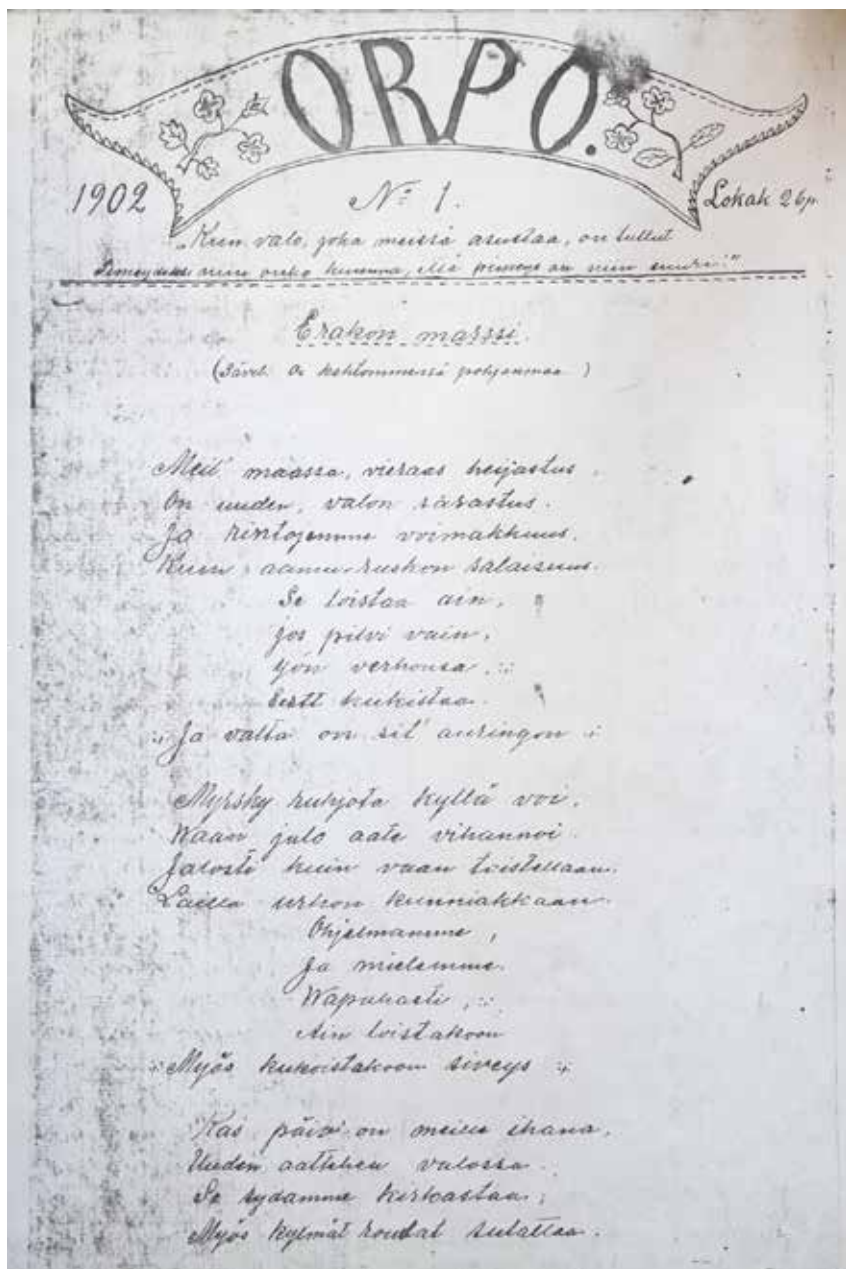 ORPO.
1902
No 1.
Lokak 26p.
"Kun valo, joka meissä asustaa, on tullut
pimeydeksi niin on, että pimeys on niin suuri!"
Erakon marssi.
(Sävel. Oi kehtommessa pohjanmaa)
Meil' maassa, vieraas heijastus.
On uuden, valon sarastus.
Ja rintojemme voimakkuus.
Kuin aamu-ruskon salaisuus.
Se loistaa ain,
jos pilvi vain,
yön verhonsa ,:
kukistaa.
:,: Ja valta on sil' auringon :,:
Myrsky ruhjota kyllä voi.
Waan jalo aate vihannoi
Jalosti kuin vaan toistellaan.
Lailla urhon kunniakkaan.
Ohjelmamme ,
Ja mielemme.
Wapahasti ,:
Ain loistakoon
:,: Myös kukoistakoon siveys :,:
Kas päivä on meille ihana.
Uuden aattehen valossa.
Se sydämme kirkastaa,
Myös kylmät roudat sulattaa.